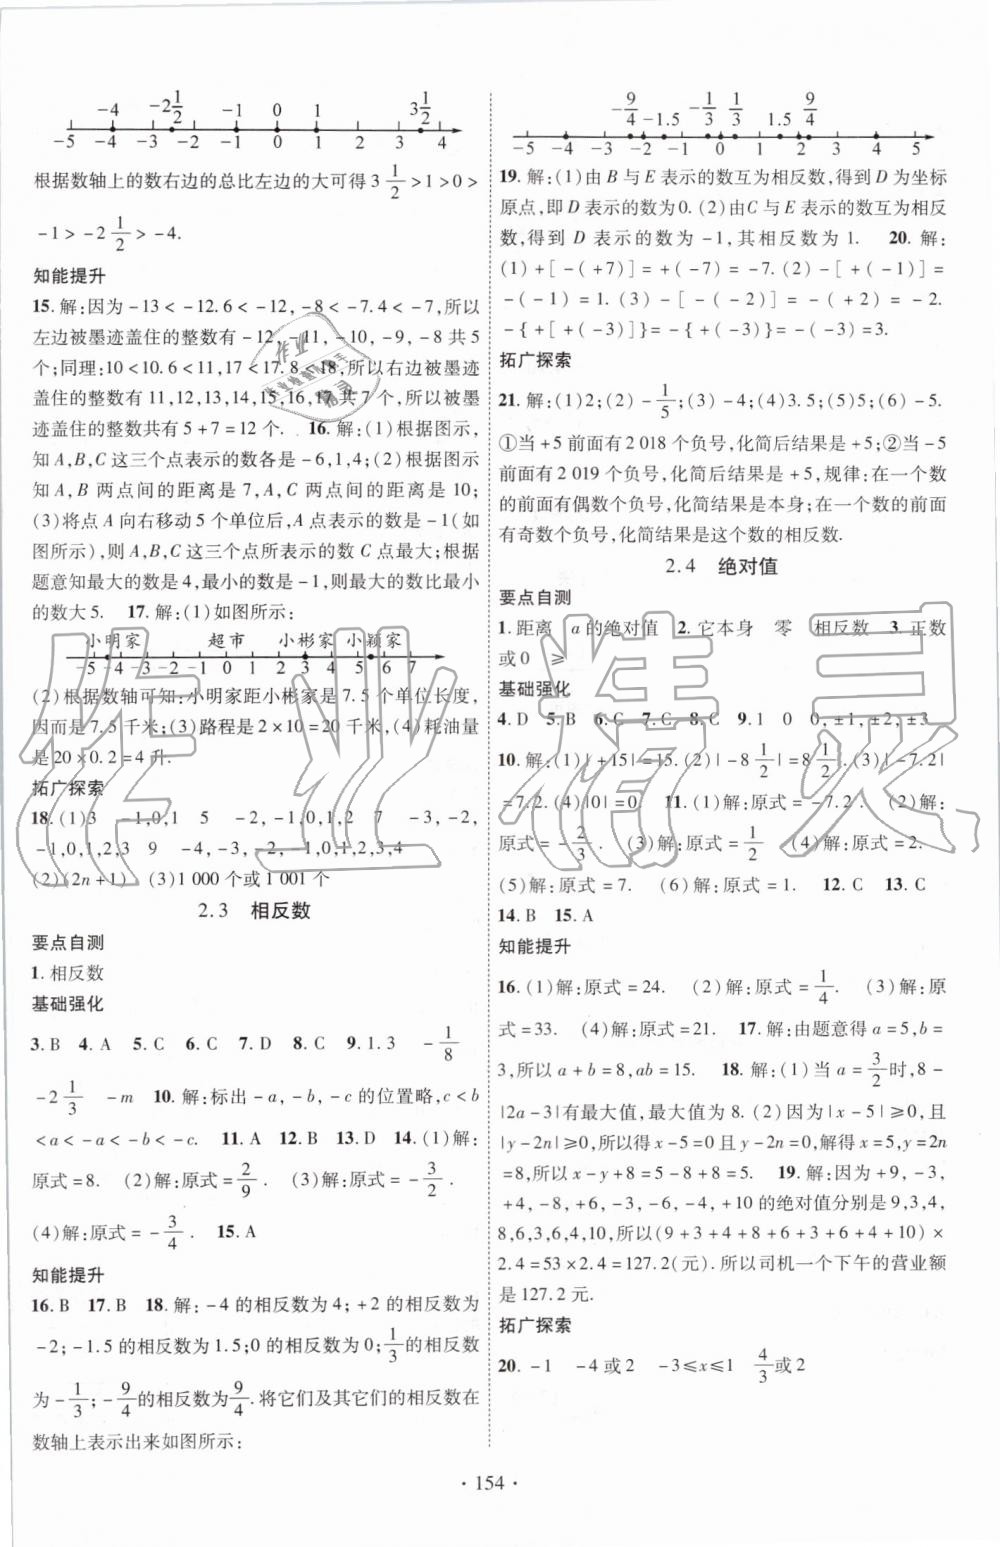 -4 -2 1/2 -1 0 1 3 1/2
-5 -4 -3 -2 -1 0 1 2 3 4
根据数轴上的数右边的总比左边的大可得 3 1/2 >1>0>
-1>-2 1/2 >-4.
知能提升
15.解:因为-13<-12.6<-12,-8<-7.4<-7,所以
左边被墨迹盖住的整数有-12,-11,-10,-9,-8共5
个;同理:10<10.6<11,17<17.8<18,所以右边被墨迹
盖住的整数有11,12,13,14,15,16,17共7个,所以被墨
迹盖住的整数共有5+7=12个. 16.解:(1)根据图示,
知A,B,C这三个点表示的数各是-6,1,4;(2)根据图示
知A,B两点间的距离是7,A,C两点间的距离是10;
(3)将点A向右移动5个单位后,A点表示的数是-1(如
图所示),则A,B,C这三个点所表示的数C点最大;根据
题意知最大的数是4,最小的数是-1,则最大的数比最小
的数大5. 17.解:(1)如图所示:
小明家 超市 小彬家 小颖家
-5 -4 -3 -2 -1 0 1 2 3 4 5 6 7
(2)根据数轴可知:小明家距小彬家是7.5个单位长度,
因而是7.5千米;(3)路程是2×10=20千米,(4)耗油量
是20×0.2=4升.
拓广探索
18.(1)3 -1,0,1 5 -2,-1,0,1,2 7 -3,-2,
-1,0,1,2,3 9 -4,-3,-2,-1,0,1,2,3,4
(2)(2n+1) (3)1 000个或1 001个
2.3 相反数
要点自测
1.相反数
基础强化
3.B 4.A 5.C 6.C 7.D 8.C 9.1.3 -1/8
-2 1/3 -m 10.解:标出-a,-b,-c的位置略,c<b
<a<-a<-b<-c. 11.A 12.D 13.D 14.(1)解:
原式=8. (2)解:原式=2/9. (3)解:原式=-3/2.
(4)解:原式=-3/4. 15.A
知能提升
16.B 17.B 18.解:-4的相反数为4;+2的相反数为
-2;-1.5的相反数为1.5;0的相反数为0;1/3的相反数
为-1/3;-9/4的相反数为9/4.将它们及其它们的相反数在
数轴上表示出来如图所示:
-9/4 -1.5 -1/3 1/3 1.5 9/4
-5 -4 -3 -2 -1 0 1 2 3 4 5
19.解:(1)由B与E表示的数互为相反数,得到D为坐标
原点,即D表示的数为0.(2)由C与E表示的数互为相反
数,得到D表示的数为-1,其相反数为1. 20.解:
(1)+[-(+7)]=+(-7)=-7.(2)-[+(-1)]=
-(-1)=1.(3)-[-(-2)]=-(+2)=-2.
-{+[+(-3)]}=-{+(-3)}=-(-3)=3.
拓广探索
21.解:(1)2;(2)-1/5;(3)-4;(4)3.5;(5)5;(6)-5.
①当+5前面有2 018个负号,化简后结果是+5;②当-5
前面有2 019个负号,化简后结果是+5,规律:在一个数
的前面有偶数个负号,化简结果是本身;在一个数的前面
有奇数个负号,化简结果是这个数的相反数.
2.4 绝对值
要点自测
1.距离 a的绝对值 2.它本身 零 相反数 3.正数
或0 ≥
基础强化
4.D 5.B 6.C 7.C 8.C 9.1 0 0,±1,±2,±3
10.解:(1)|+15|=15.(2)|-8 1/2|=8 1/2.(3)|-7.2|
=7.2.(4)|0|=0. 11.(1)解:原式=-7.2. (2)解:
原式=-2/3. (3)解:原式=1/2 (4)解:原式=2.
(5)解:原式=7. (6)解:原式=1. 12.C 13.C
14.B 15.A
知能提升
16.(1)解:原式=24. (2)解:原式=1/4. (3)解:原
式=33. (4)解:原式=21. 17.解:由题意得a=5,b=
3,所以a+b=8,ab=15. 18.解:(1)当a=3/2时,8-
|2a-3|有最大值,最大值为8.(2)因为|x-5|≥0,且
|y-2n|≥0,所以得x-5=0且y-2n=0,解得x=5,y=2n
=8,所以x-y+8=5-8+8=5. 19.解:因为+9,-3,
+4,-8,+6,-3,-6,-4,+10的绝对值分别是9,3,4,
8,6,3,6,4,10,所以(9+3+4+8+6+3+6+4+10)×
2.4=53×2.4=127.2(元).所以司机一个下午的营业额
是127.2元.
拓广探索
20.-1 -4或2 -3≤x≤1 4/3或2
·154·
作业精灵